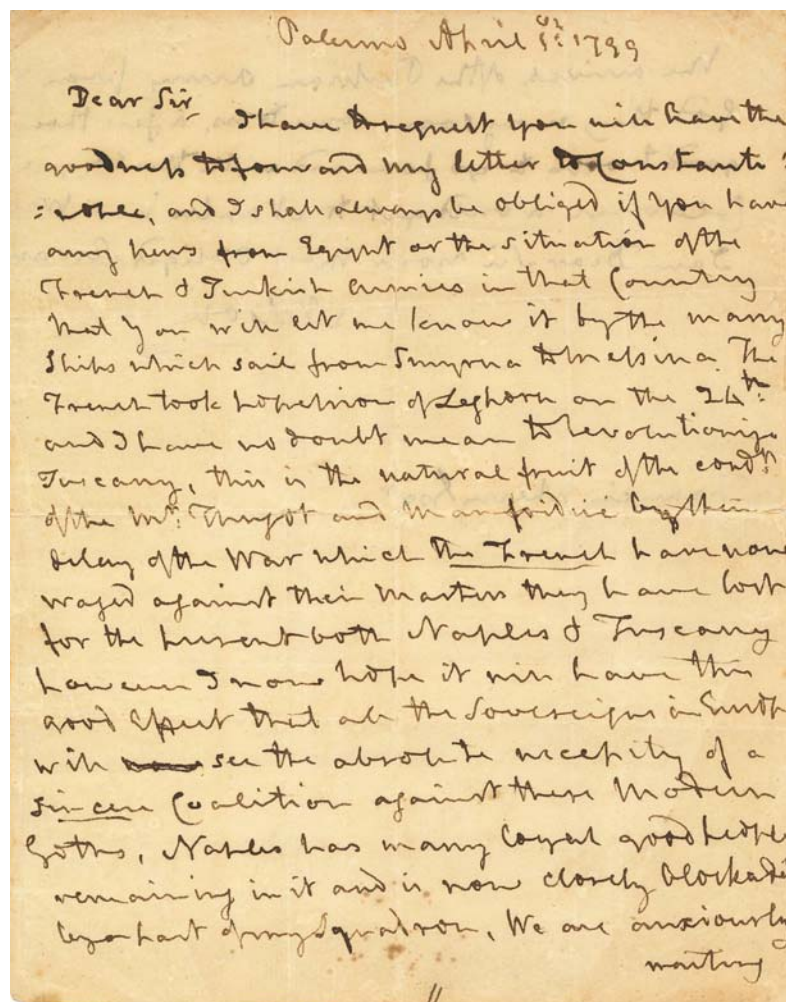 Palermo April 1st: 1799
Dear Sir
I have to request you will have the
goodness to forward my letter to Constanti
=nople, and I shall always be obliged if you have
any news from Egypt or the situation of the
French & Turkish Armies in that Country
that you will let me know it by the many
Ships which sail from Smyrna to Messina. The
French took possession of Leghorn on the 24th:
and I have no doubt mean to revolutionize
Tuscany, this is the natural fruit of the condt.
of the Mr: Thugot and Manfridini by their
delay of the War which the French have now
waged against their Masters they have lost
for the present both Naples & Tuscany
however I now hope it will have this
good effect that all the Sovereigns in Europe
will see the absolute necessity of a
sincere Coalition against these Modern
Goths, Naples has many loyal good people
remaining in it and is now closely blockaded
by a part of my Squadron, We are anxiously
waiting